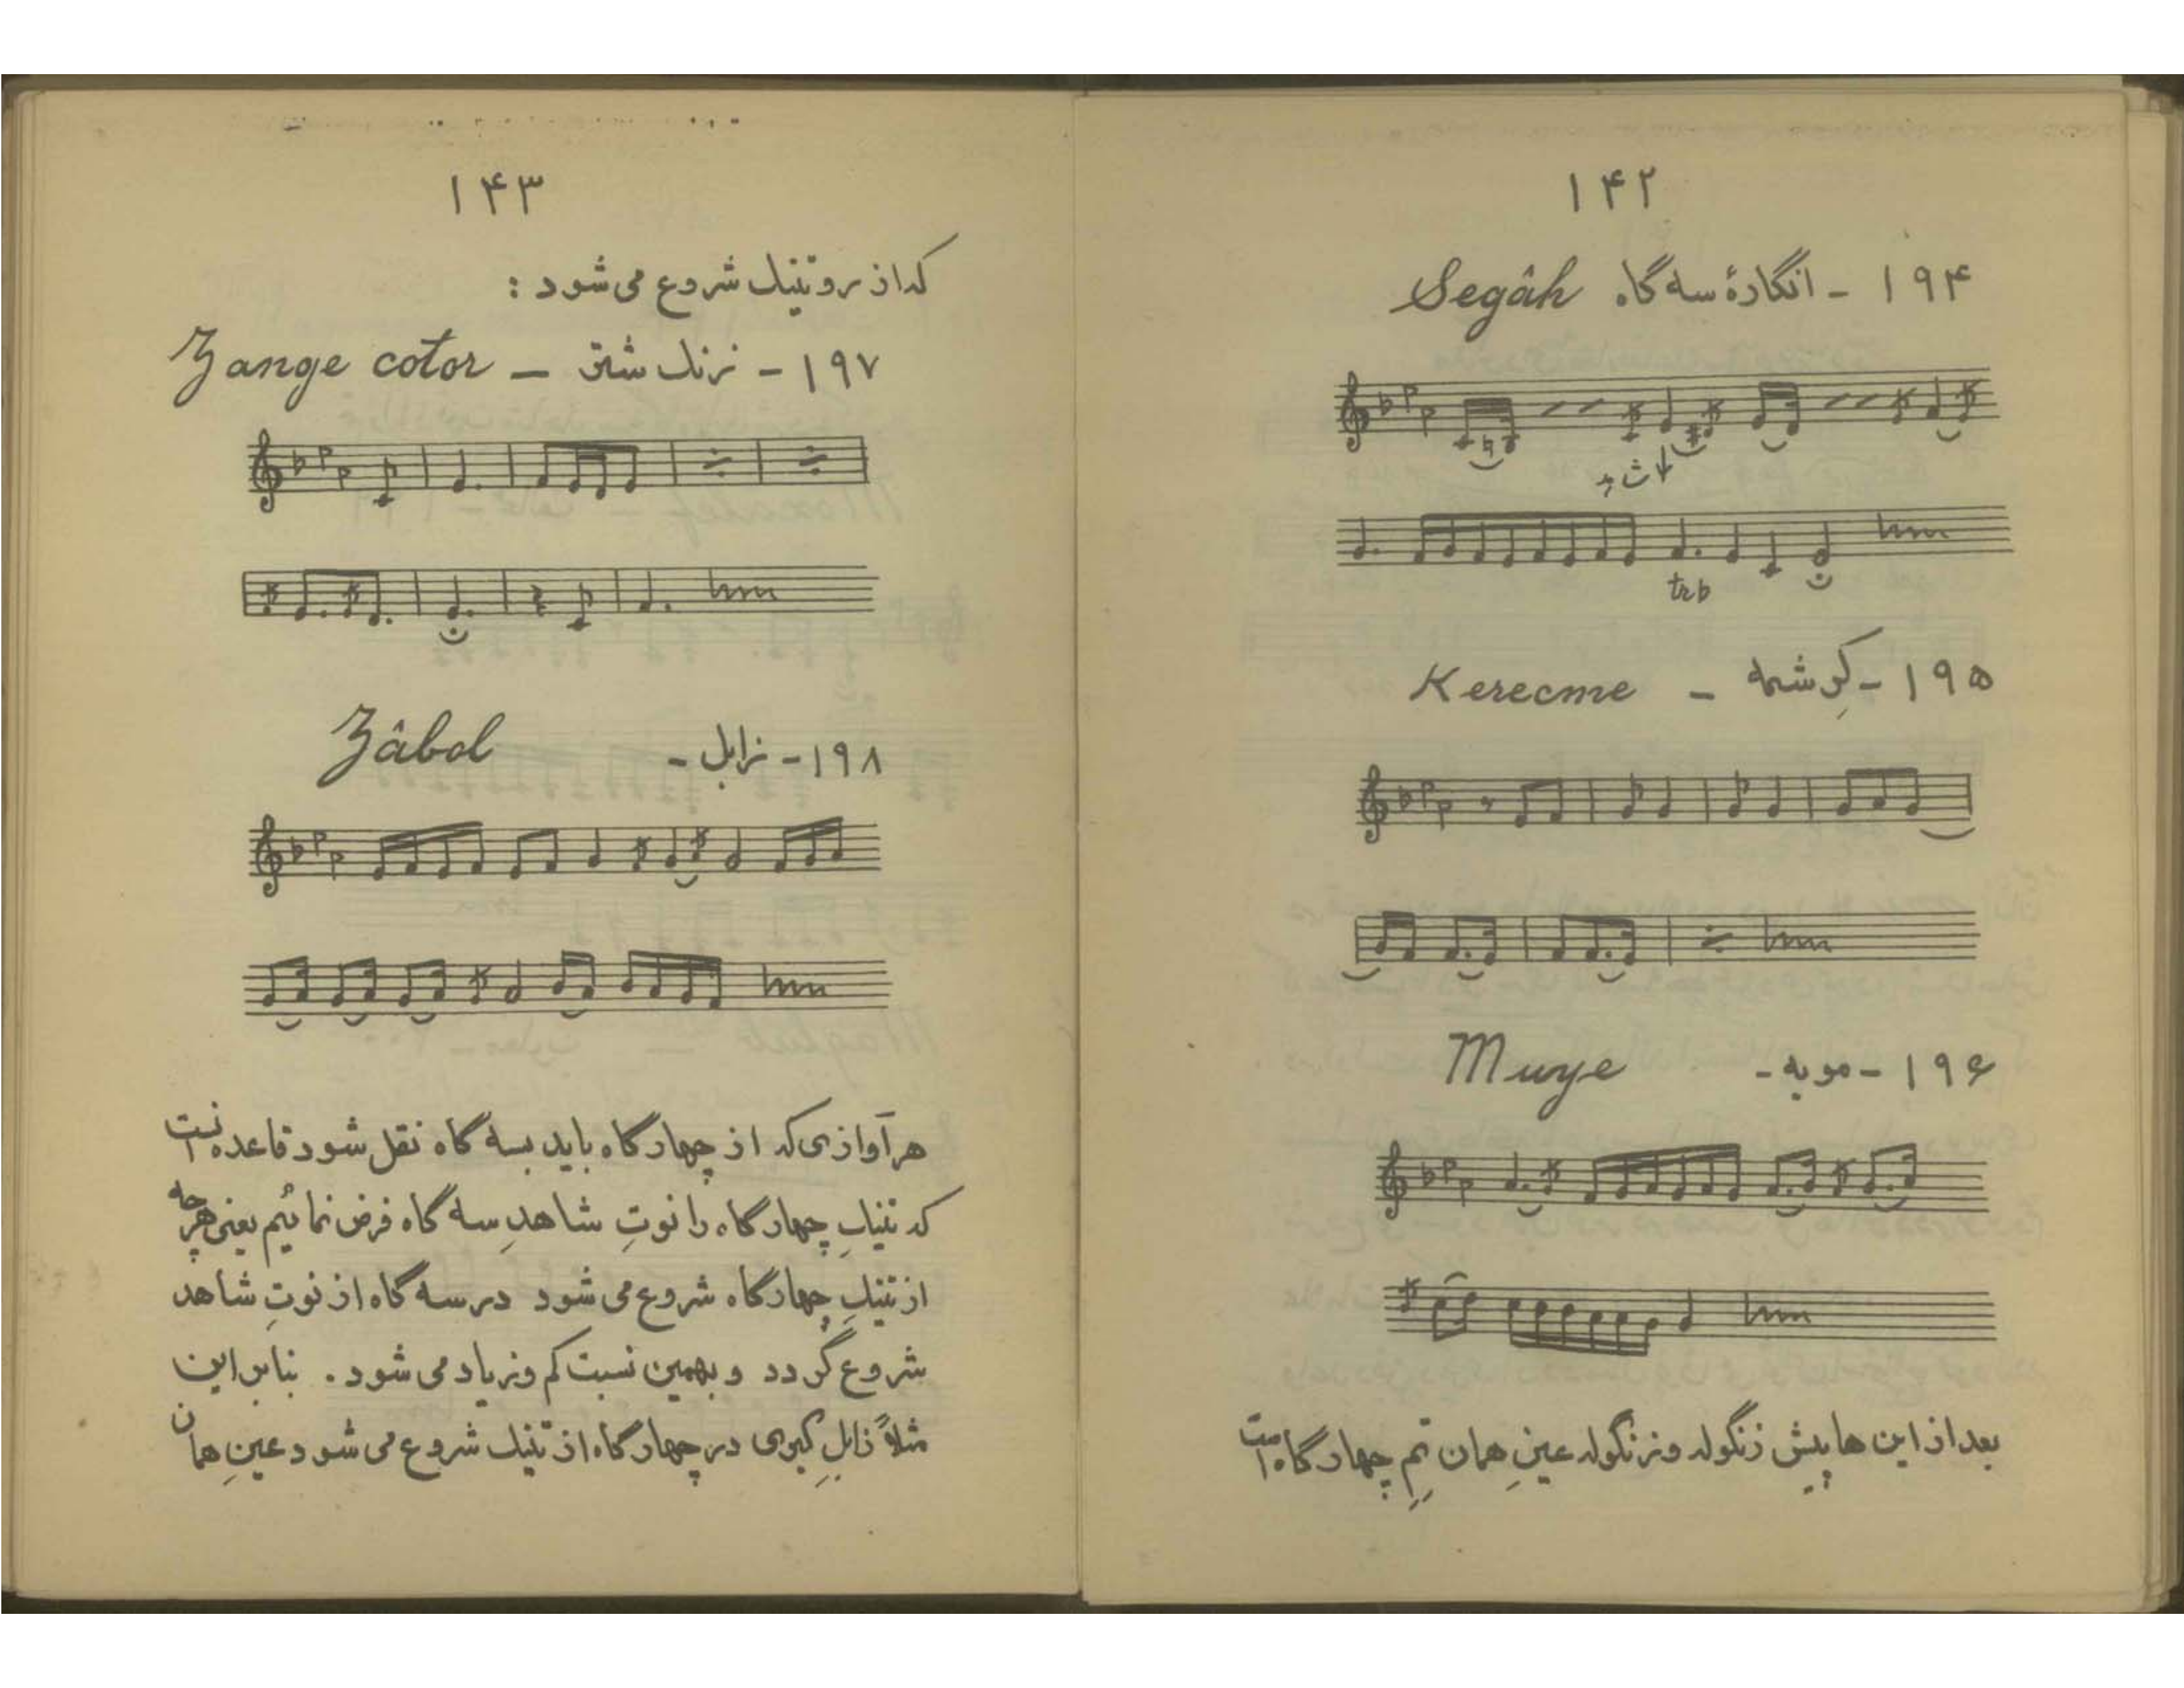 ۱۴۲
۱۹۴ - انگارهٔ سه گاه Segâh
شاهد
trb
۱۹۵ - کرِشمه - Kerecme
۱۹۶ - مویه - Muye
بعد از این ها پیش زنگوله و زنگوله عینِ همان تمِ چهارگاه است
۱۴۳
که از رو تنیک شروع می شود :
۱۹۷ - زنگ شتر - Zange cotor
۱۹۸ - زابل - Zâbol
هر آوازی که از چهارگاه باید بسه گاه نقل شود قاعده است
که تنیکِ چهارگاه را نوتِ شاهدِ سه گاه فرض نمائیم یعنی هرچه
از تنیکِ چهارگاه شروع می شود در سه گاه از نوتِ شاهد
شروع گردد و بهمین نسبت کم و زیاد می شود . بنابر این
مثلاً زابلِ کبری در چهارگاه از تنیک شروع می شود عینِ همان